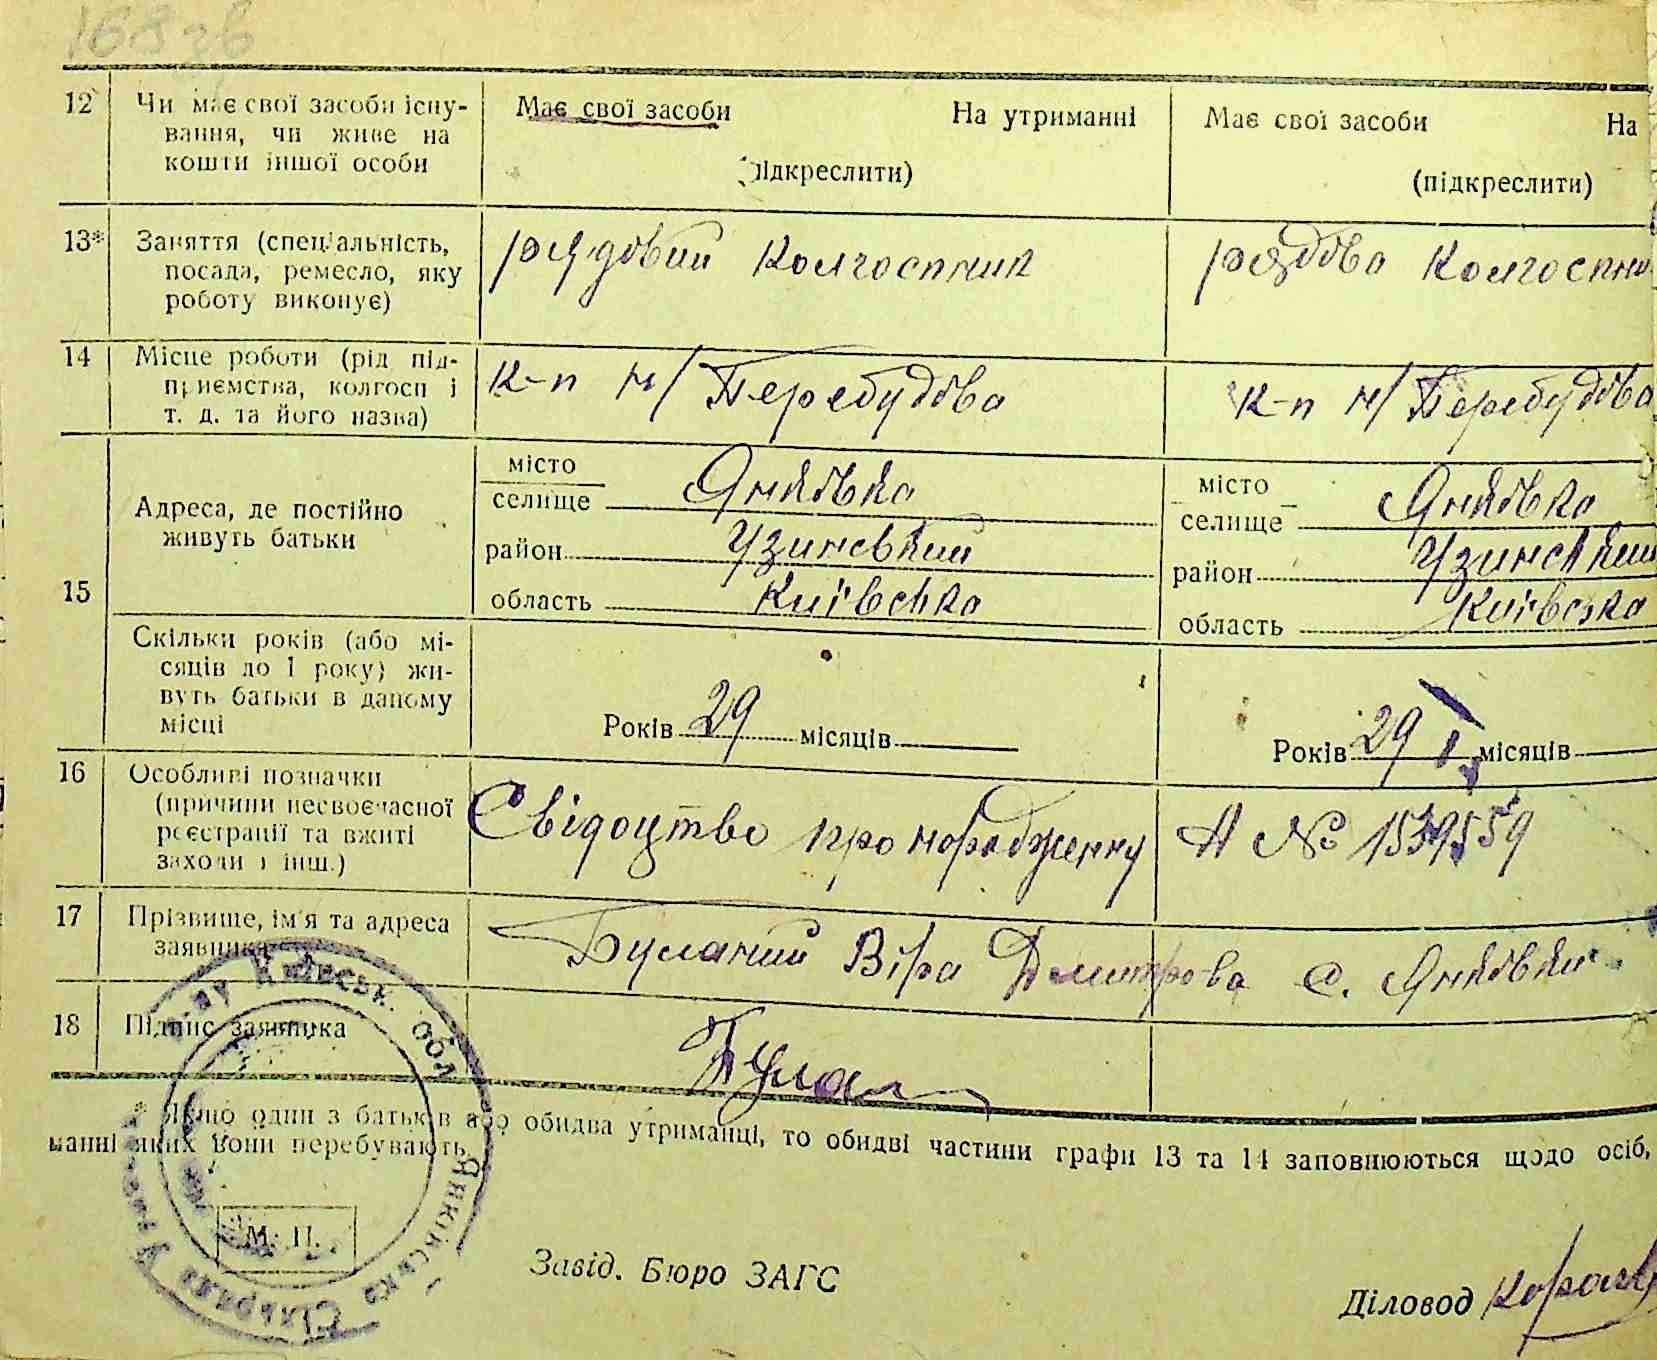 168 зв
12 Чи має свої засоби існу- Має свої засоби На утриманні Має свої засоби На
вання, чи живе на
кошти іншої особи (підкреслити) (підкреслити)
13* Заняття (спеціальність, рядовий колгоспник рядова колгоспни
посада, ремесло, яку
роботу виконує)
14 Місце роботи (рід під- к-п н/Перебудова к-п н/Перебудова
приємства, колгосп і
т. д. та його назва)
15 Адреса, де постійно
живуть батьки
місто
селище Янківка
район Узинський
область Київська
місто
селище Янківка
район Узинський
область Київська
Скільки років (або мі-
сяців до 1 року) жи-
вуть батьки в даному
місці
Років 29 місяців Років 29 місяців
16 Особливі позначки
(причини несвоєчасної
реєстрації та вжиті
заходи і інш.)
Свідоцтво про народження А №
17 Прізвище, ім'я та адреса
заявника
Буланий Віра Дмитрова с. Янківки
18 Підпис заявника Була
* Якщо один з батьків або обидва утриманці, то обидві частини графи 13 та 14 заповнюються щодо осіб,
манні яких вони перебувають
М. П.
р-ну Київськ. Обл.
Янківська Сільрада
Завід. Бюро ЗАГС
Діловод